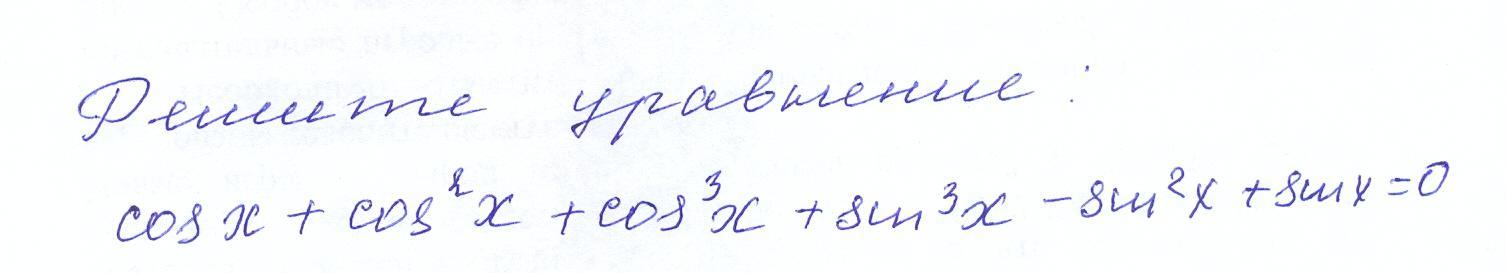 Решите уравнение:
cos x + cos²x + cos³x + sin³x - sin²x + sin x = 0